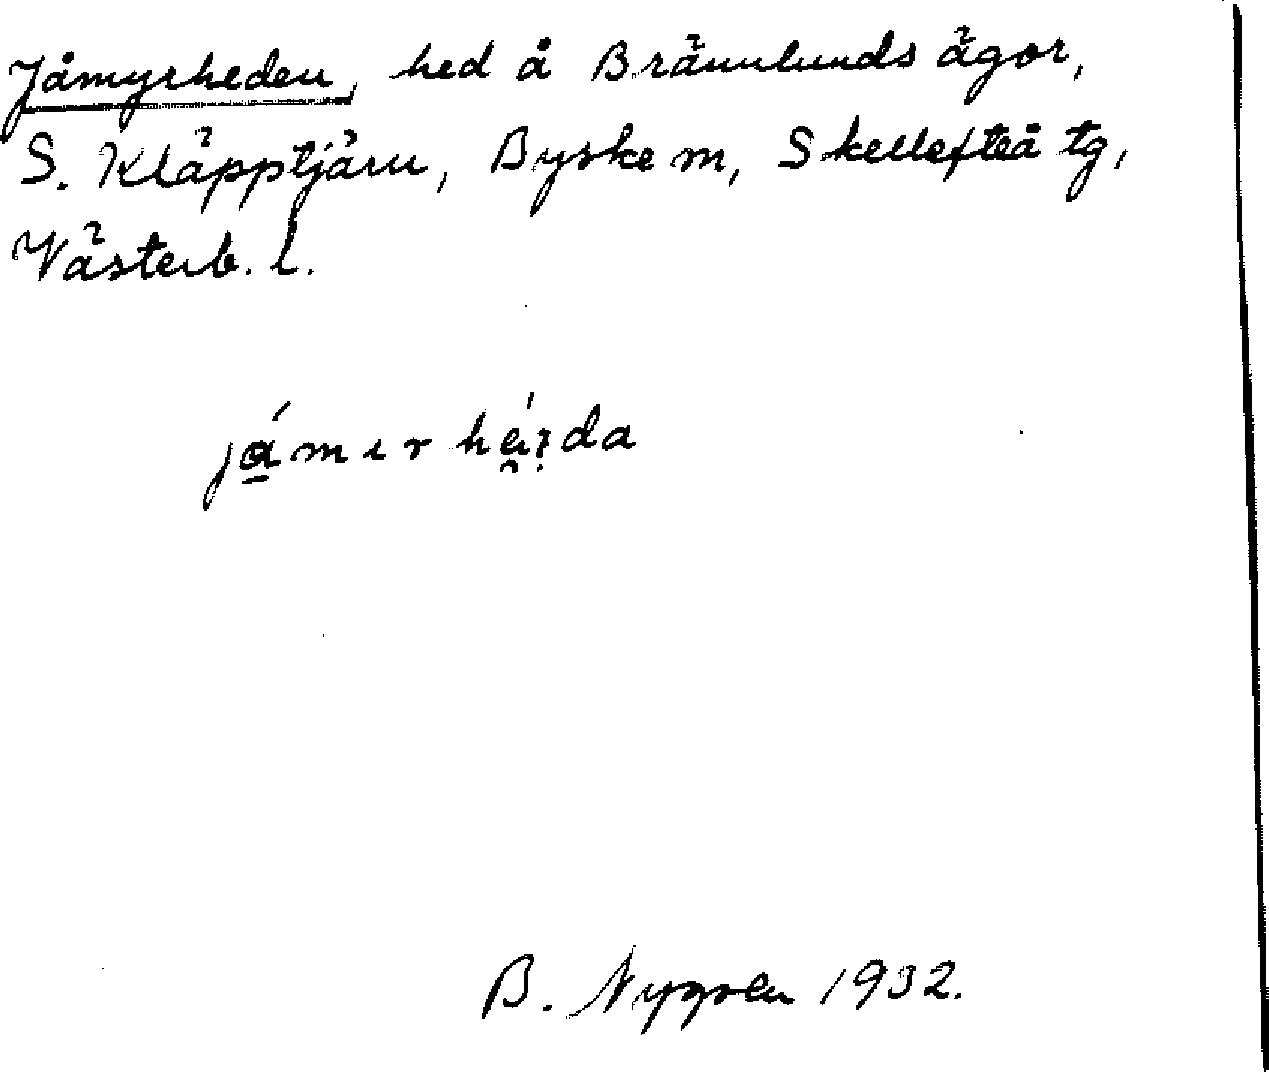 Jåmyrheden, hed å Brännlunds ägor,
S. Kläpptjärn, Byske m, Skellefteå tg,
Västerb. l.
já̱mırhé̯ı̣da
B. Nygren 1932.